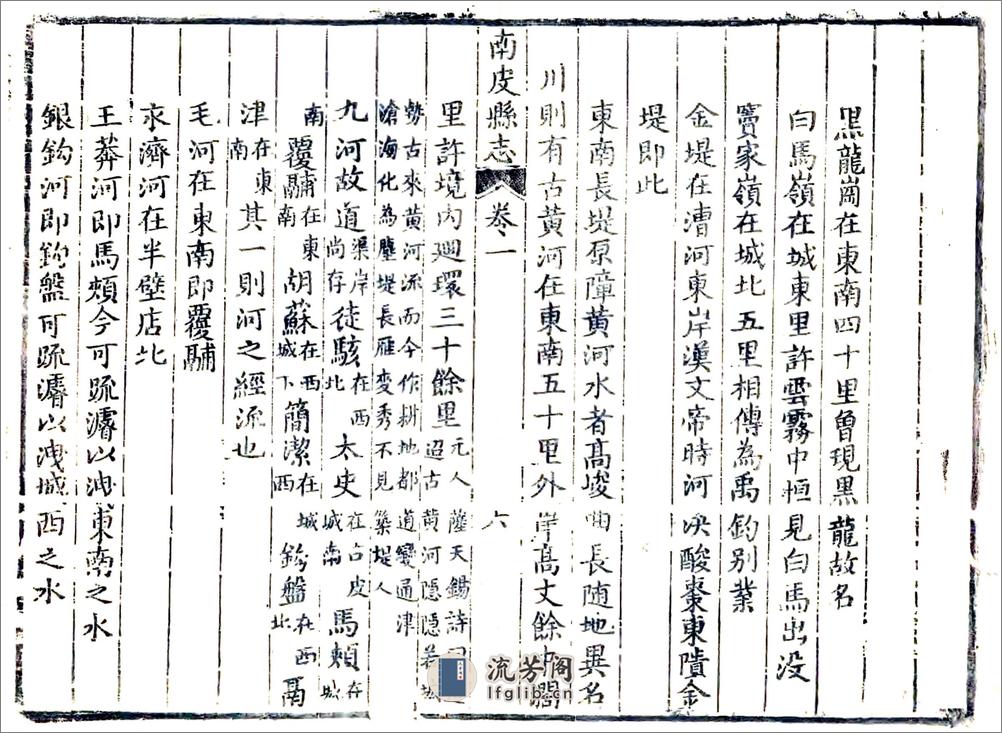 黑龍崗在東南四十里曾現黑龍故名
白馬嶺在城東里許雲霧中恒見白馬出没
竇家嶺在城北五里相傳為禹釣别業
金堤在漕河東岸漢文帝時河決酸棗東隤金
堤即此
東南長堤原障黄河水者髙峻曲長随地異名
川則有古黄河在東南五十里外岸髙丈餘中濶
南皮縣志 卷一 六
里許境内廻環三十餘里元人薩天錫詩迢古黄河隱隱若城
勢古來黄河流而今作耕地都道變通津
滄海化為塵堤長雁変秀不見築堤人
九河故道渠岸尚存徒駭在西北太史在古皮城南馬頰在城
南覆鬴在東南胡蘇在西城下簡潔在城西鈎盤在西北鬲
津在東南其一則河之經流也
毛河在東南即覆鬴
永濟河在半壁店北
王莽河即馬頰今可疏濬以洩東南之水
銀鈎河即鈎盤可疏濬以洩城西之水
流芳阁
lfglib.cn